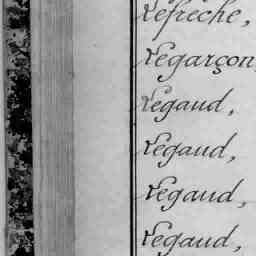 Lefreche,
Legarçon,
Legaud,
Legaud,
Legaud,
Legaud,